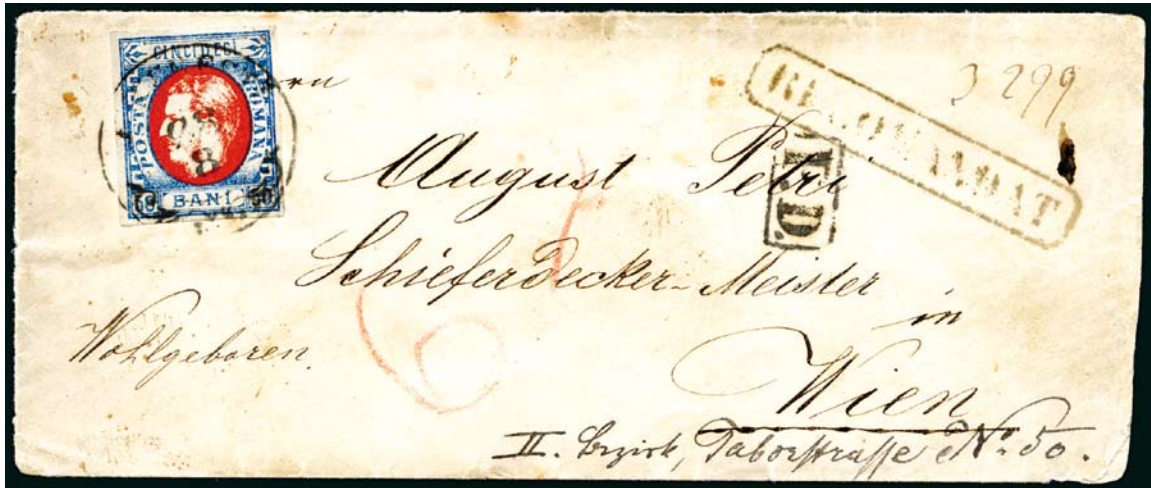 CINCIDECI
POSTA ROMANA
50 BANI 50
28
8
RECOMANDAT
3 299
P.D.
August Petri
Schieferdecker-Meister
in
Wohlgeboren
Wien
II. Bezirk, Taborstrasse No. 50.